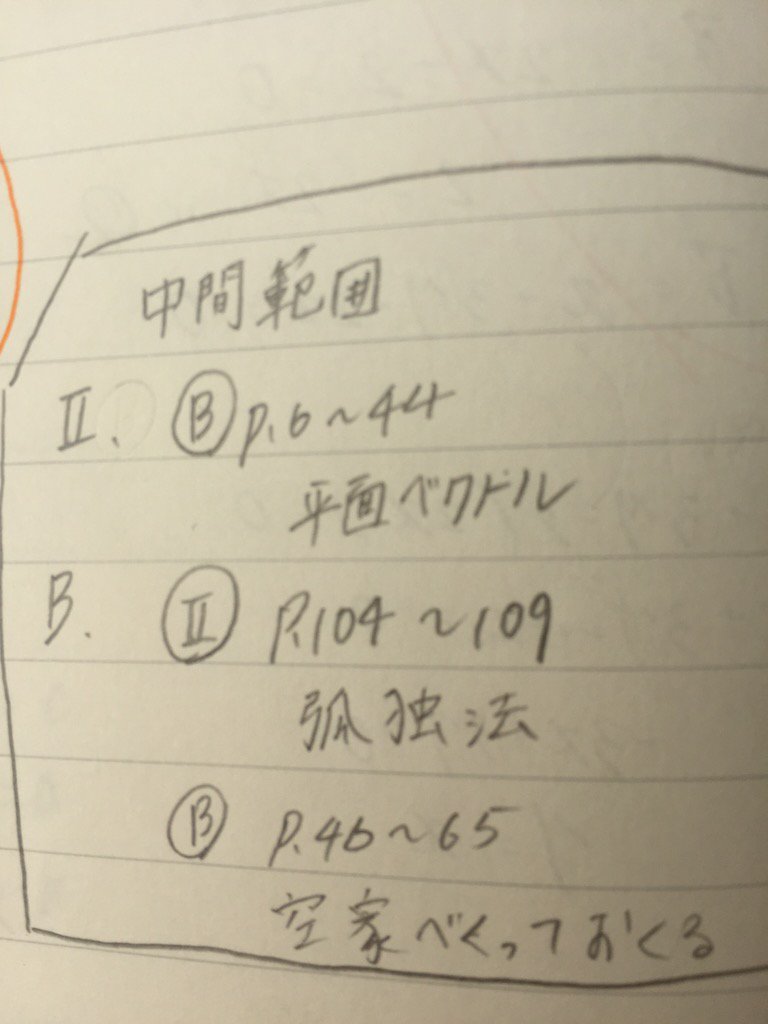 中間範囲
II. Ⓑ p.6～44
平面ベクドル
B. Ⓘ​Ⓘ P.104～109
弧独法
Ⓑ P.46～65
空家べくっておくる